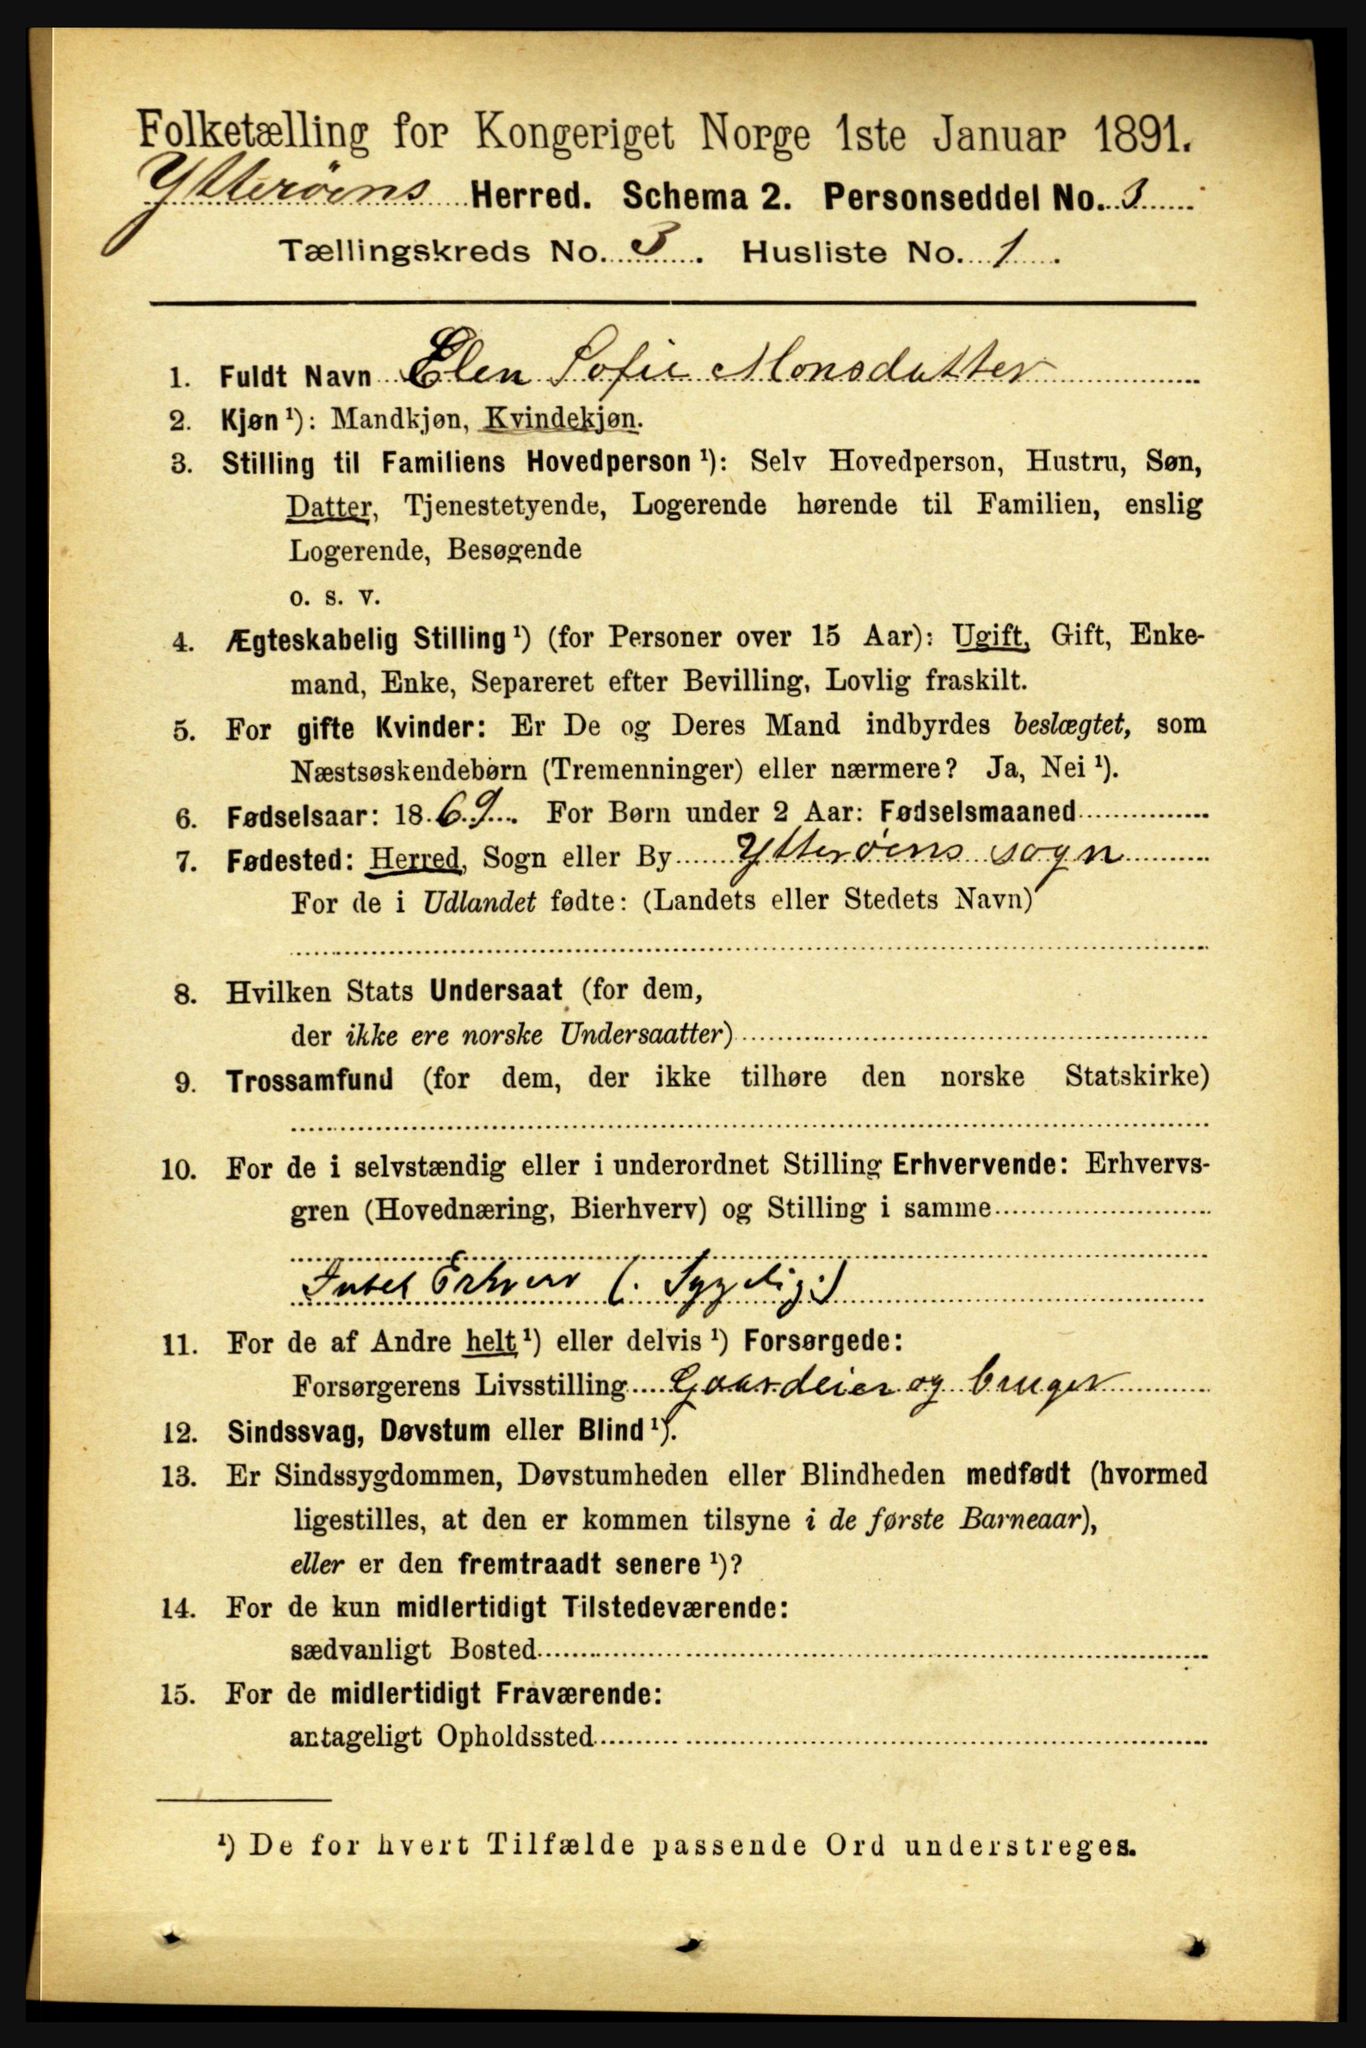 Folketælling for Kongeriget Norge 1ste Januar 1891.
Ytterøens Herred. Schema 2. Personseddel No. 3
Tællingskreds No. 3. Husliste No. 1.
1. Fuldt Navn Elen Sofie Monsdatter
2. Kjøn ¹): Mandkjøn, Kvindekjøn.
3. Stilling til Familiens Hovedperson ¹): Selv Hovedperson, Hustru, Søn,
Datter, Tjenestetyende, Logerende hørende til Familien, enslig
Logerende, Besøgende
o. s. v.
4. Ægteskabelig Stilling ¹) (for Personer over 15 Aar): Ugift, Gift, Enke-
mand, Enke, Separeret efter Bevilling, Lovlig fraskilt.
5. For gifte Kvinder: Er De og Deres Mand indbyrdes beslægtet, som
Næstsøskendebørn (Tremenninger) eller nærmere? Ja, Nei ¹).
6. Fødselsaar: 1869. For Børn under 2 Aar: Fødselsmaaned
7. Fødested: Herred, Sogn eller By Ytterøens sogn
For de i Udlandet fødte: (Landets eller Stedets Navn)
8. Hvilken Stats Undersaat (for dem,
der ikke ere norske Undersaatter)
9. Trossamfund (for dem, der ikke tilhøre den norske Statskirke)
10. For de i selvstændig eller i underordnet Stilling Erhvervende: Erhvervs-
gren (Hovednæring, Bierhverv) og Stilling i samme
Intet Erhverv (: Sygelig :)
11. For de af Andre helt ¹) eller delvis ¹) Forsørgede:
Forsørgerens Livsstilling Gaardeier og bruger
12. Sindssvag, Døvstum eller Blind ¹).
13. Er Sindssygdommen, Døvstumheden eller Blindheden medfødt (hvormed
ligestilles, at den er kommen tilsyne i de første Barneaar),
eller er den fremtraadt senere ¹)?
14. For de kun midlertidigt Tilstedeværende:
sædvanligt Bosted
15. For de midlertidigt Fraværende:
antageligt Opholdssted
¹) De for hvert Tilfælde passende Ord understreges.